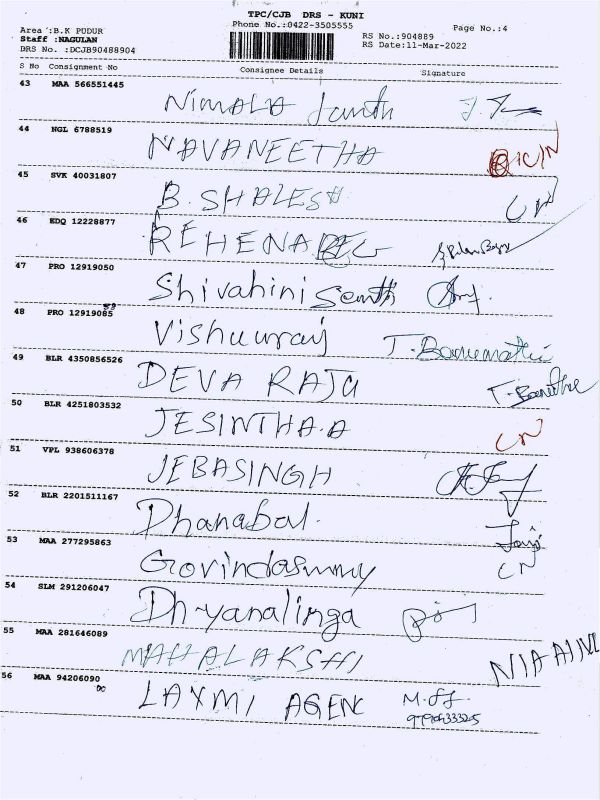 TPC/CJB DRS - KUNI
Area :B.K PUDUR Phone No.:0422-3505555 Page No.:4
Staff :NAGULAN RS No.:904889
DRS No. :DCJB90488904 RS Date:11-Mar-2022
S No Consignment No Consignee Details Signature
43 MAA 566551445 Nimala
44 NGL 6788519 NAVANEETHA
45 SVK 40031807 B. SHALESH CN
46 EDQ 12228877 REHENA BEG
47 PRO 12919050 Shivahini Senth
48 PRO 12919085
49 BLR 4350856526 DEVA RAJU
50 BLR 4251803532 JESINTHA.A CN
51 VPL 938606378 JEBASINGH
52 BLR 2201511167 Dhanabal.
53 MAA 277295863 Govindasmmy CN
54 SLM 291206047 Dhyanalinga
55 MAA 281646089 MAHALAKSHI
56 MAA 94206090 LAXMI AGENC